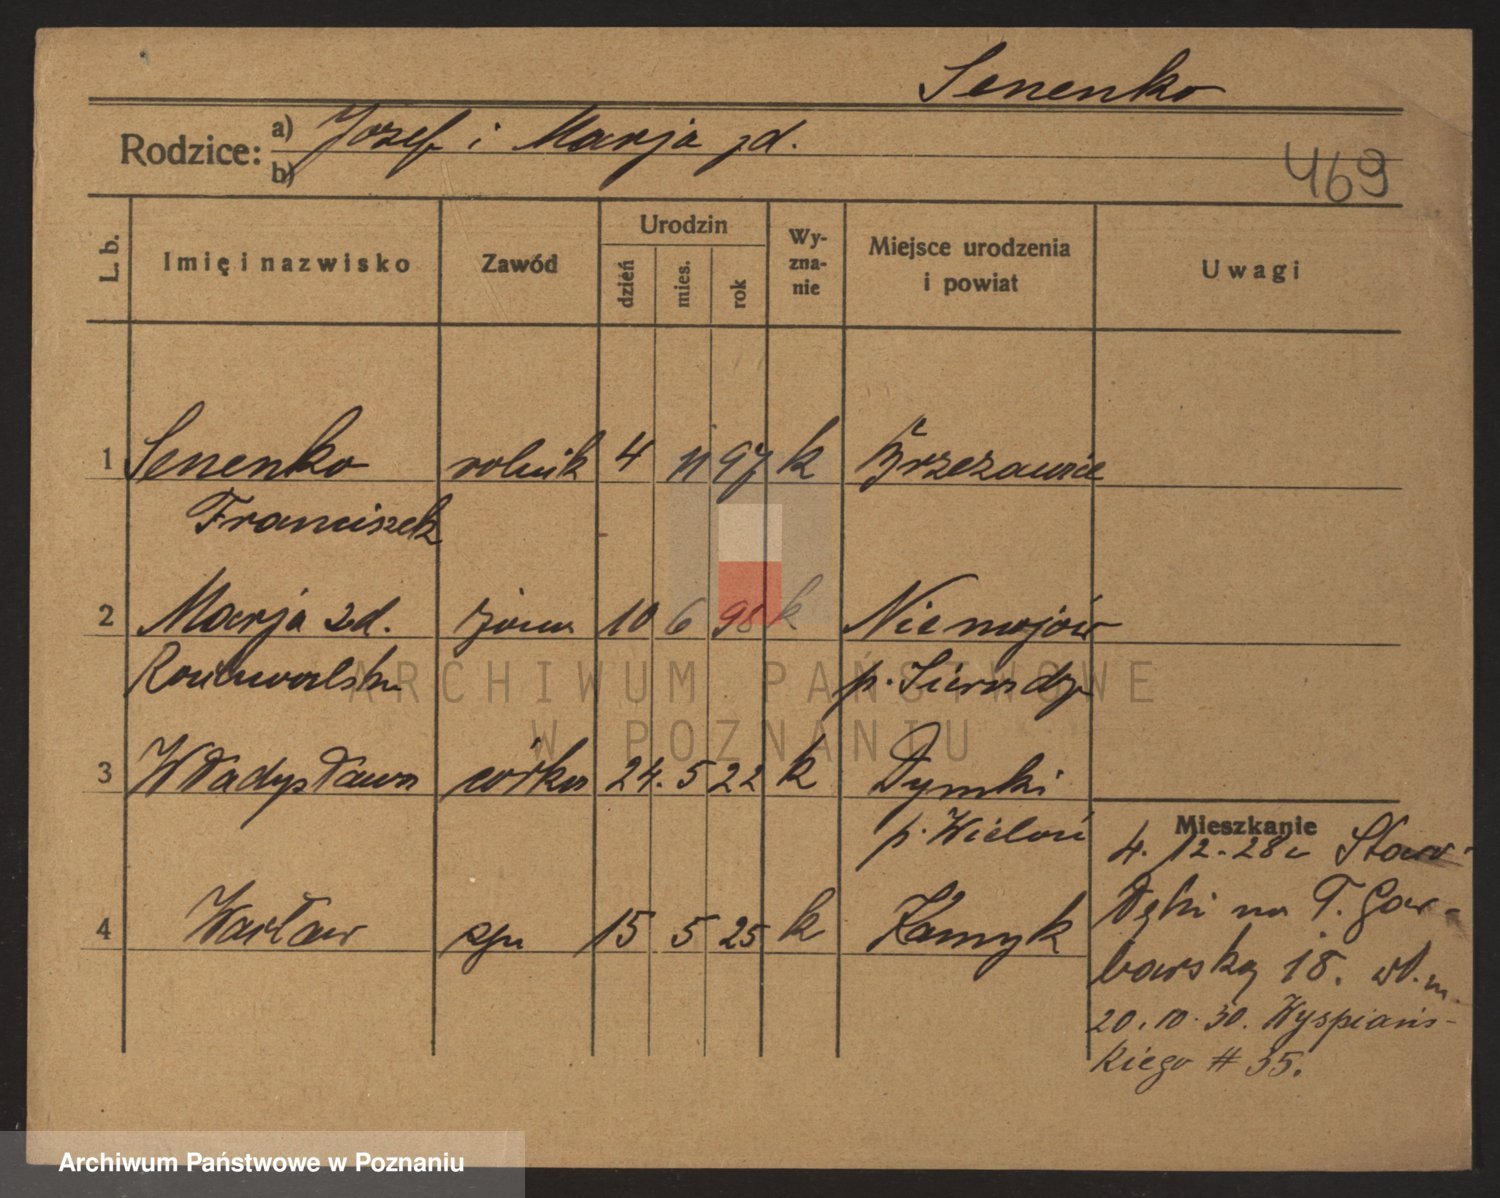 Senenko
Rodzice: a) Józef i Marja zd.
b)
469
L. b.
Imię i nazwisko
Zawód
Urodzin
dzień
mies.
rok
Wy-
zna-
nie
Miejsce urodzenia
i powiat
Uwagi
1 Senenko rolnik 4 11 97 k
Franciszek
2 Marja zd. żona 10 6 98 k Niemojów
p. Sieradz
3 Władysława córka 24. 5 22 k Dymki
p. Wieluń
4 Wacław syn 15 5 25 k Kamyk
Mieszkanie
4. 12. 28
na T. Gar-
barska 18.
20. 10. 30. Wyspiańs-
kiego # 35.
ARCHIWUM PAŃSTWOWE
W POZNANIU
Archiwum Państwowe w Poznaniu